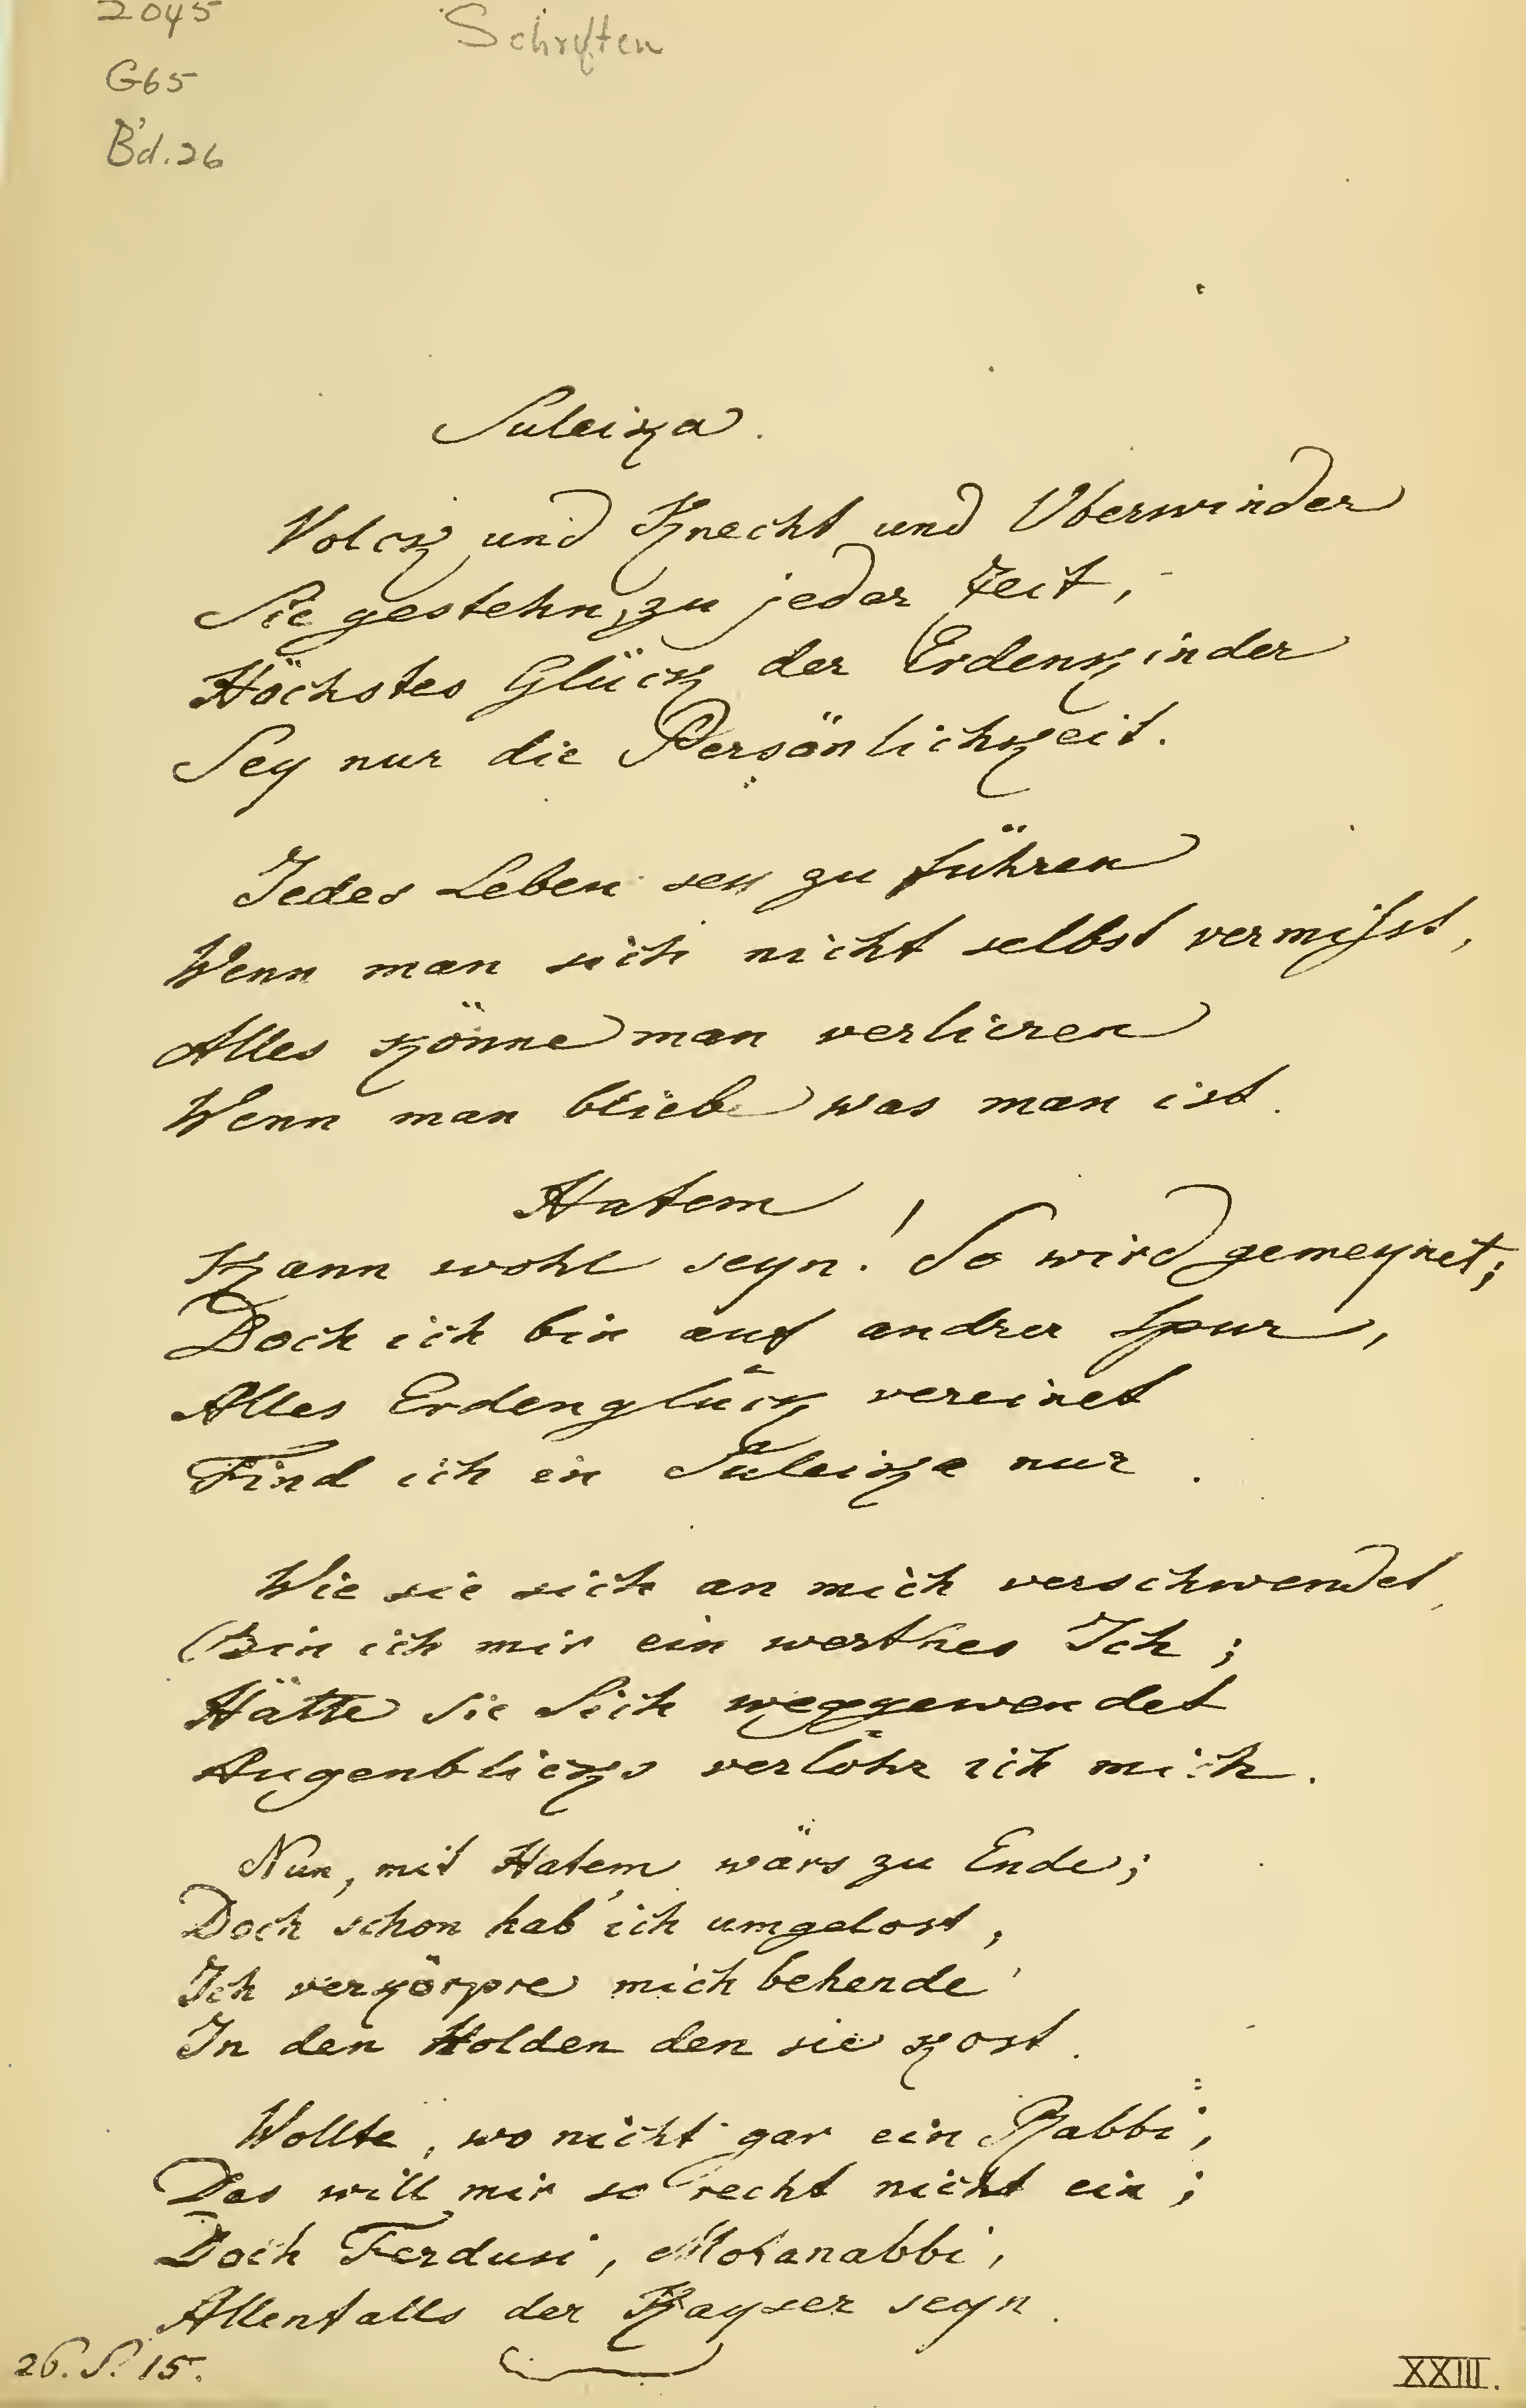 2045
G65
Bd. 26
Schriften
Suleika.
Volck und Knecht und Uberwinder
Sie gestehn, zu jeder Zeit,
Höchstes Glück der Erdenkinder
Sey nur die Persönlichkeit.
Jedes Leben sey zu führen
Wenn man sich nicht selbst vermißst,
Alles könne man verlieren
Wenn man bliebe was man ist.
Hatem
Kann wohl seyn! So wird gemeynet;
Doch ich bin auf andrer Spur,
Alles Erdenglück vereinet
Find ich in Suleika nur.
Wie sie sich an mich verschwendet,
Bin ich mir ein werthes Ich;
Hätte Sie Sich weggewendet
Augenblicks verlöhr ich mich.
Nun, mit Hatem wärs zu Ende;
Doch schon hab' ich umgelost,
Ich verkörpre mich behende
In den Holden den sie kost.
Wollte, wo nicht gar ein Rabbi,
Das will mir so recht nicht ein;
Doch Ferdusi, Motanabbi,
Allenfalls der Kayser seyn.
26. S. 15.
XXIII.